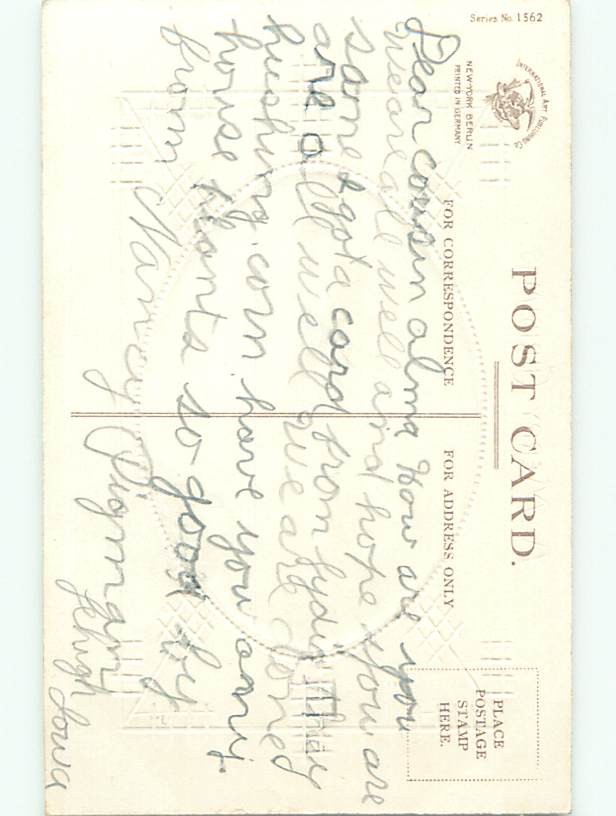 Series No. 1562
INTERNATIONAL ART PUBLISHING Co
NEW-YORK BERLIN
PRINTED IN GERMANY
POST CARD.
FOR CORRESPONDENCE
FOR ADDRESS ONLY
PLACE
POSTAGE
STAMP
HERE.
Dear cousin alma How are you
we are all well and hope you are
same I got a card from Lydia they
are all well we are done
husking corn have you any
house plants so good by
from
Nancy Pigman
Lehigh Iowa